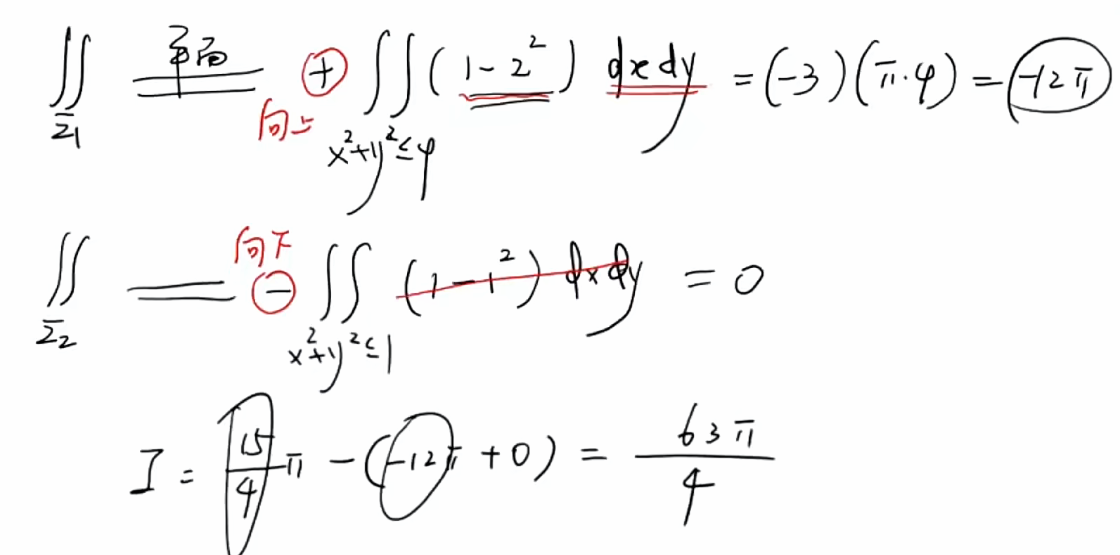 ∬_{Σ1} ══ ⊕ ∬_{x²+y²≤4} (1-2²) dxdy = (-3)(π·4) = -12π
向上
向下
∬_{Σ2} ══ ⊖ ∬_{x²+y²≤1} (1-1²) dxdy = 0
I = 15/4 π - (-12π + 0) = 63π/4